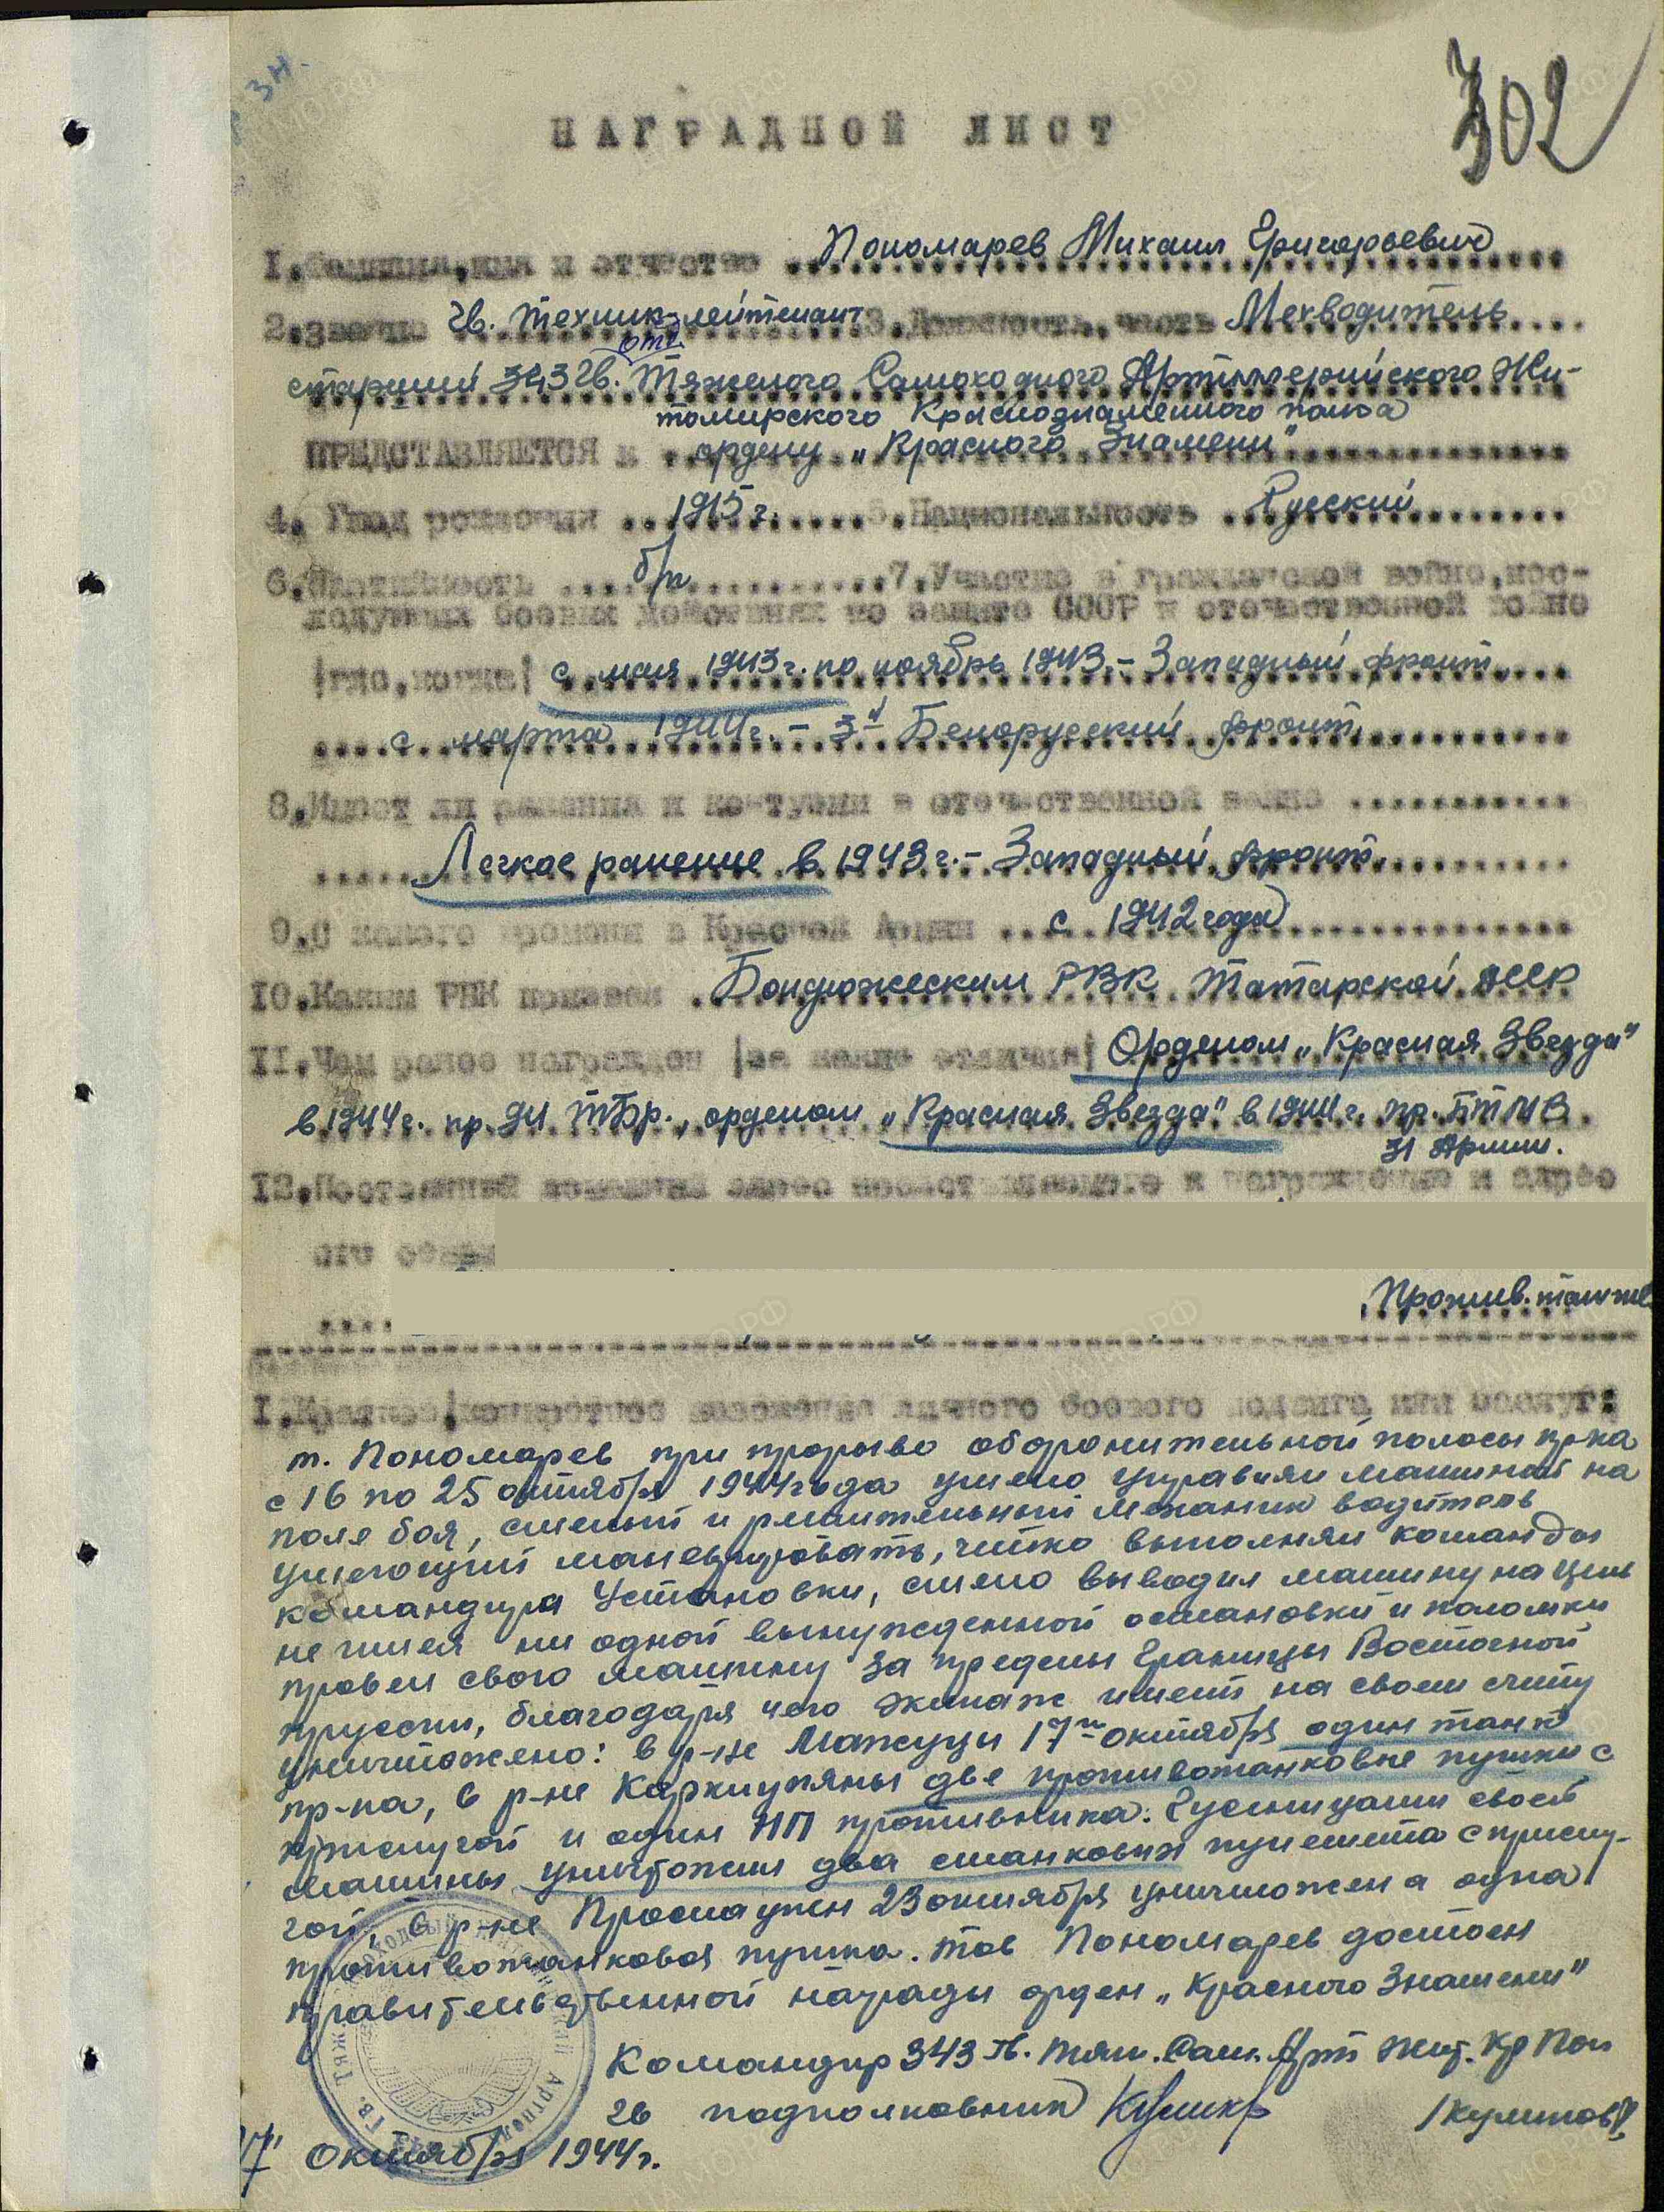 302
НАГРАДНОЙ ЛИСТ
1. Фамилия, имя и отчество Пономарев Михаил Григорьевич
2. Звание Гв. техник-лейтенант 3. Должность, часть Мехводитель
отд.
старший 343 Гв. Тяжелого Самоходного Артиллерийского Жи-
томирского Краснознаменного полка
ПРЕДСТАВЛЯЕТСЯ к ордену „Красного Знамени"
4. Год рождения 1915 г. 5. Национальность Русский
6. Партийность б/п 7. Участие в гражданской войне, пос-
ледующих боевых действиях по защите СССР и отечественной войне
/где, когда/ с мая 1943 г. по ноябрь 1943 - Западный фронт,
с марта 1944 г. - 3й Белорусский фронт.
8. Имеет ли ранения и контузии в отечественной войне
Легкое ранение в 1943 г. - Западный фронт.
9. С какого времени в Красной Армии с 1942 года
10. Каким РВК призван Бондюжским РВК Татарской АССР
11. Чем ранее награжден /за какие отличия/ Орденом „Красная Звезда"
в 1944 г. пр. ТБр., орденом „Красная Звезда" в 1944 г. пр. БТМВ
31 Армии.
12. Постоянный домашний адрес представляемого к награждению и адрес
его семьи
I. Краткое, конкретное изложение личного боевого подвига или заслуг:
т. Пономарев при прорыве оборонительной полосы пр-ка
с 16 по 25 октября 1944 года умело управлял машиной на
поле боя, смелый и решительный механик водитель
умеющий маневрировать, четко выполнял команды
командира Установки, смело выводил машину на цель
не имея ни одной вынужденной остановки и поломки
провел свою машину за пределы границы Восточной
пруссии, благодаря чего экипаж имеет на своем счету
уничтожено: в р-не Мажуци 17го октября один танк
пр-ка, в р-не Каркиупяны две противотанковые пушки с
прислугой и один НП противника. Гусеницами своей
машины уничтожил два станковых пулемета с прислу-
гой, в р-не 23 октября уничтожена одна
противотанковая пушка. тов Пономарев достоен
правительственной награды орден „Красного Знамени"
Командир 343 Гв. тяж. Сам. Арт Жит. Кр Пол
гв подполковник
октября 1944 г.